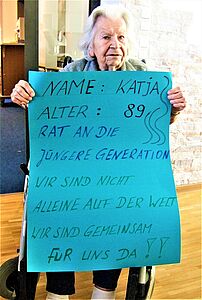 NAME: KATJA
ALTER: 89
RAT AN DIE
JÜNGERE GENERATION
WIR SIND NICHT
ALLEINE AUF DER WELT
WIR SIND GEMEINSAM
FÜR UNS DA !!